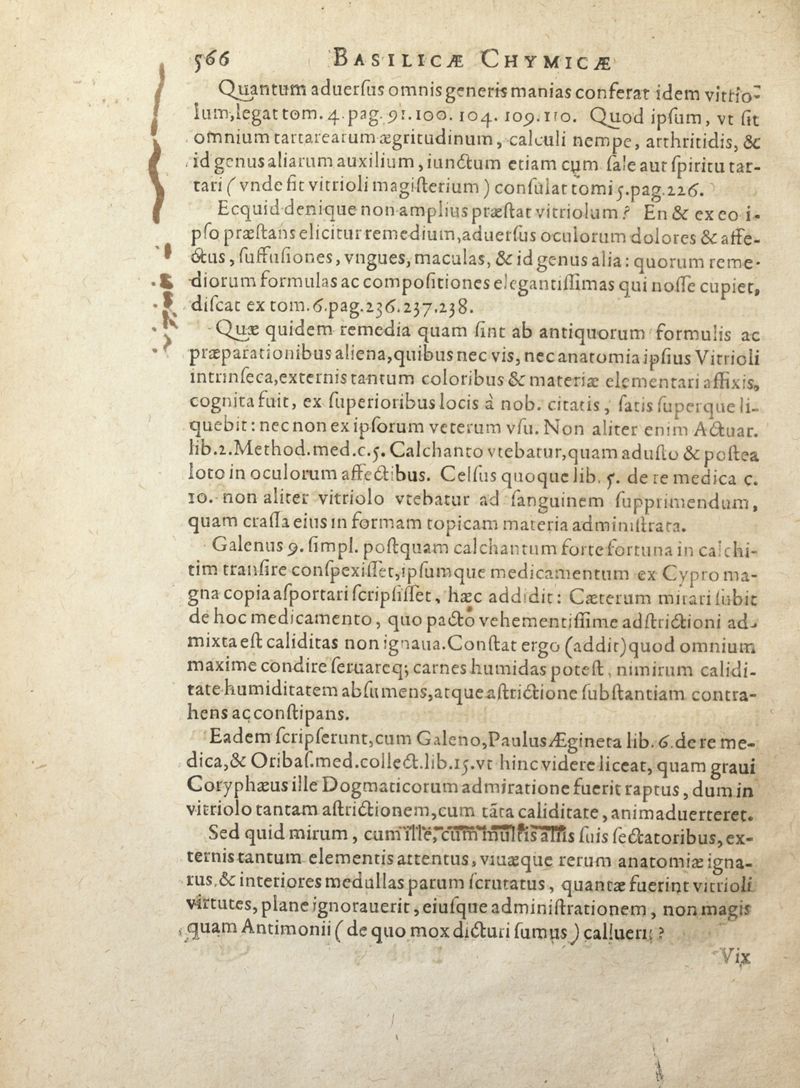 566 BASILICÆ CHYMICÆ
Quantum aduerſus omnis generis manias conferat idem vitrio-
lum, legat tom. 4. pag. 91. 100. 104. 109. 110. Quod ipſum, vt ſit
omnium tartarearum ægritudinum, calculi nempe, arthritidis, &
id genus aliarum auxilium, iunctum etiam cum ſale aut ſpiritu tar-
tari ( vnde fit vitrioli magiſterium ) conſulat tomi 5. pag. 226.
Ecquid denique non amplius præſtat vitriolum? En & ex eo i-
pſo præſtans elicitur remedium, aduerſus oculorum dolores & affe-
ctus, ſuffuſiones, vngues, maculas, & id genus alia: quorum reme-
diorum formulas ac compoſitiones elegantiſſimas qui noſſe cupiet,
diſcat ex tom. 6. pag. 236. 237. 238.
Quæ quidem remedia quam ſint ab antiquorum formulis ac
præparationibus aliena, quibus nec vis, nec anatomia ipſius Vitrioli
intrinſeca, externis tantum coloribus & materiæ elementari affixis,
cognita fuit, ex ſuperioribus locis à nob. citatis, ſatis ſuperque li-
quebit: nec non ex ipſorum veterum vſu. Non aliter enim Actuar.
lib. 2. Method. med. c. 5. Calchanto vtebatur, quam aduſto & poſtea
loto in oculorum affectibus. Celſus quoque lib. 5. de re medica c.
10. non aliter vitriolo vtebatur ad ſanguinem ſupprimendum,
quam craſſa eius in formam topicam materia adminiſtrata.
Galenus 9. ſimpl. poſtquam calchantum forte fortuna in calchi-
tim tranſire conſpexiſſet, ipſumque medicamentum ex Cypro ma-
gna copia aſportari ſcripſiſſet, hæc addidit: Cæterum mirari ſubit
de hoc medicamento, quo pacto vehementiſſime adſtrictioni ad-
mixta eſt caliditas non ignaua. Conſtat ergo (addit) quod omnium
maxime condire ſeruareq; carnes humidas poteſt, nimirum calidi-
tate humiditatem abſumens, atque aſtrictione ſubſtantiam contra-
hens ac conſtipans.
Eadem ſcripſerunt, cum Galeno, Paulus Ægineta lib. 6. de re me-
dica, & Oribaſ. med. collect. lib. 15. vt hinc videre liceat, quam graui
Coryphæus ille Dogmaticorum admiratione fuerit raptus, dum in
vitriolo tantam aſtrictionem, cum tāta caliditate, animaduerteret.
Sed quid mirum, cum ille, cum multis aliis ſuis ſectatoribus, ex-
ternis tantum elementis attentus, viuæque rerum anatomiæ igna-
rus, & interiores medullas parum ſcrutatus, quantæ fuerint vitrioli
virtutes, plane ignorauerit, eiuſque adminiſtrationem, non magis
quam Antimonii ( de quo mox dicturi ſumus ) calluerit ?
Vix